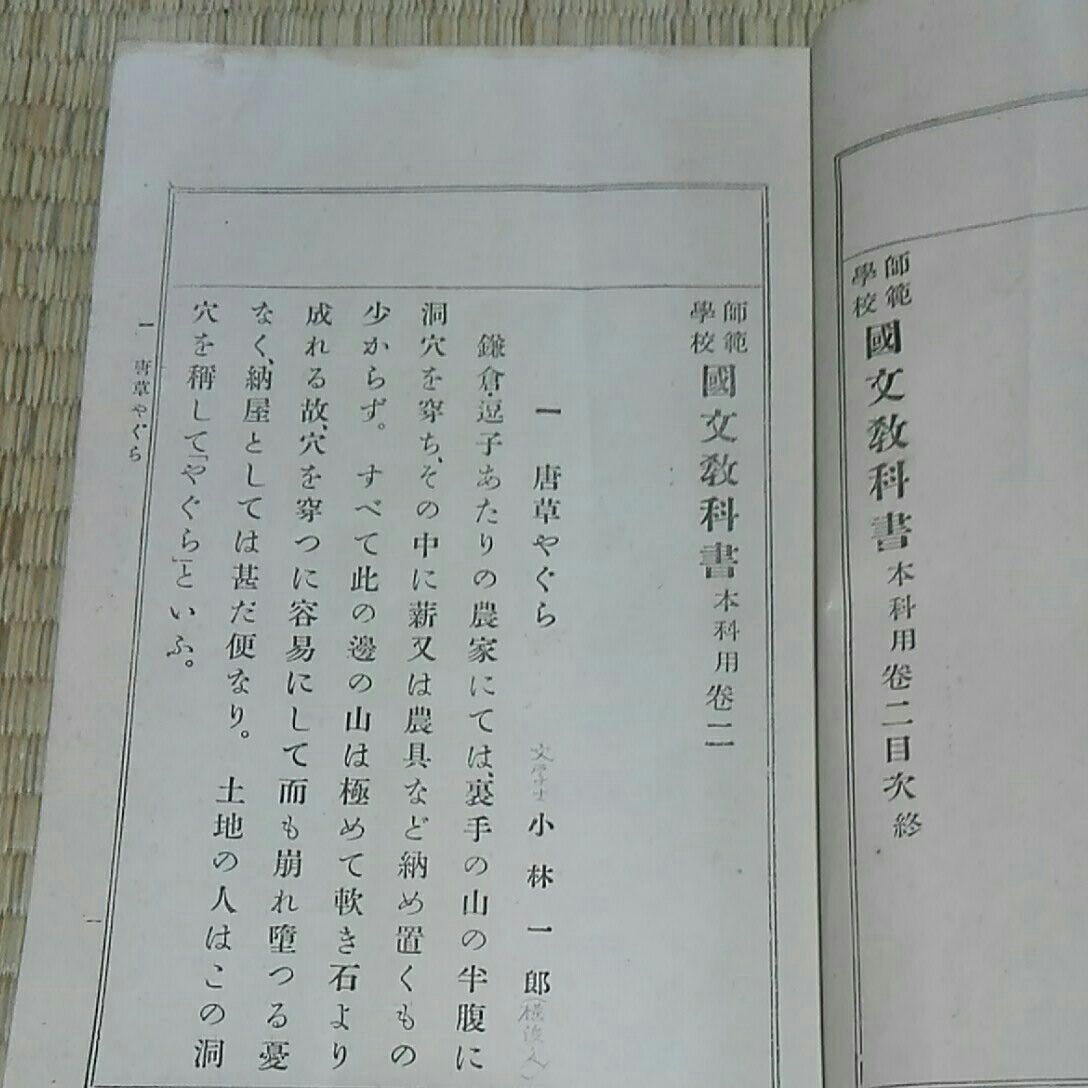 師範學校國文教科書本科用卷二目次終
師範學校國文教科書本科用卷二
一 唐草やぐら 文学士 小林一郎
鎌倉・逗子あたりの農家にては、裏手の山の半腹に
洞穴を穿ち、その中に薪又は農具など納め置くもの
少からず。すべて此の邊の山は極めて軟き石より
成れる故、穴を穿つに容易にして而も崩れ墮つる憂
なく、納屋としては甚だ便なり。土地の人はこの洞
穴を稱して「やぐら」といふ。
一 唐草やぐら
一